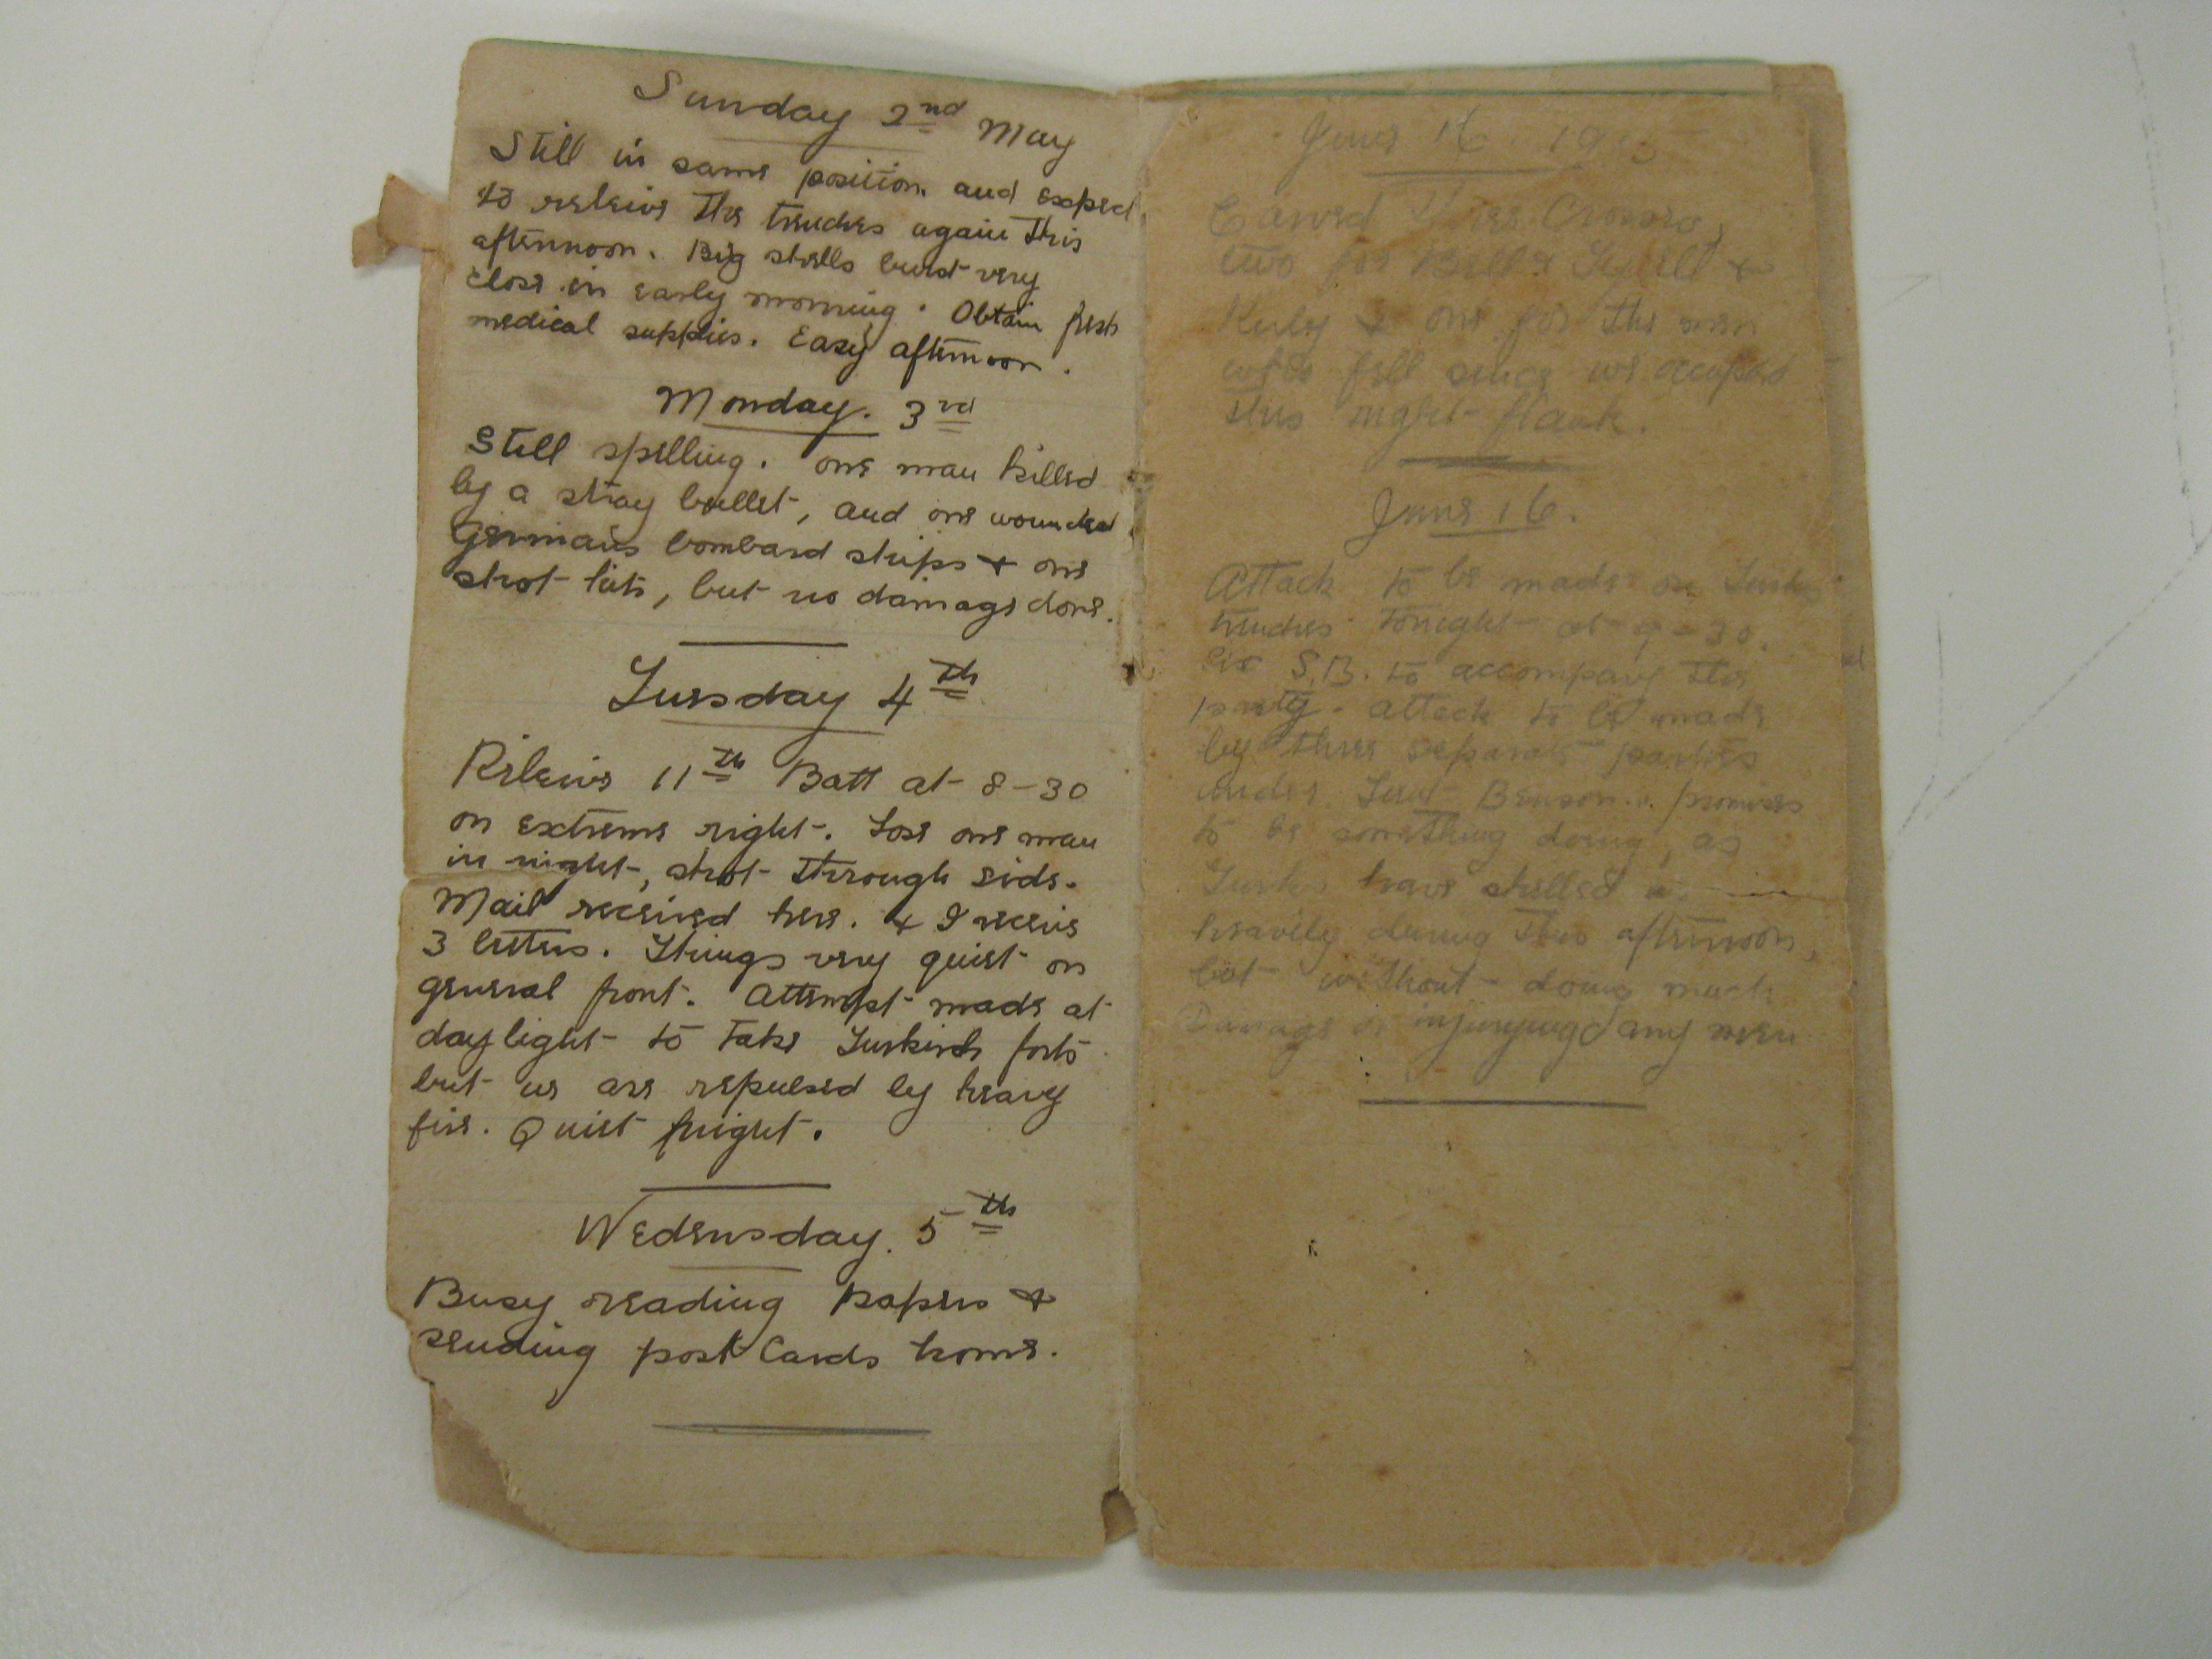 Sunday 2nd May
Still in same position and expect
to releive the trenches again this
afternoon. Big shells burst very
close in early morning. Obtain fresh
medical supplies. Easy afternoon.
Monday. 3rd
Still spelling. one man killed
by a stray bullet, and one wounded.
Germans bombard ships & one
shot hits, but no damage done.
Tuesday 4th
Releive 11th Batt at 8-30
on extreme right. Lose one man
in night, shot through side.
Mail received here. & I receive
3 letters. Things very quiet on
general front. Attempt made at
daylight to take Turkish forts
but we are repulsed by heavy
fire. Quiet night.
Wedensday. 5th
Busy reading papers &
sending post Cards home.
June 16 1915
Carved three Crosses,
two for &
& one for the men
who fell since we
this right flank.
June 16.
Attack to be made on Turks
trenches tonight at 9-30.
S.B. to accompany the
party. attack to be made
by three separate parties
under Lieut Benson. promises
to be something doing, as
Turks have shelled us
heavily during the afternoon,
but without doing much
Damage or any men